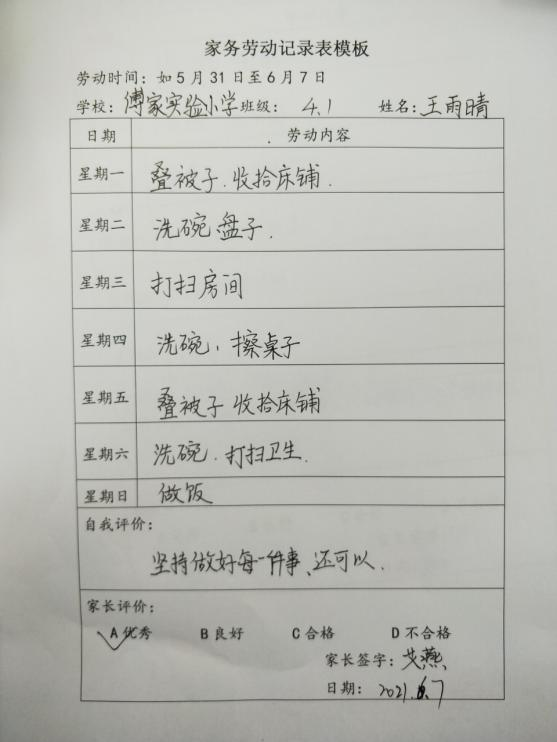 家务劳动记录表模板
劳动时间：如5月31日至6月7日
学校：傅家实验小学班级：4.1 姓名：王雨晴
日期 劳动内容
星期一 叠被子.收拾床铺.
星期二 洗碗、盘子.
星期三 打扫房间
星期四 洗碗，擦桌子
星期五 叠被子 收拾床铺
星期六 洗碗.打扫卫生.
星期日 做饭
自我评价：
坚持做好每一件事、还可以.
家长评价：
A优秀 B良好 C合格 D不合格
家长签字：艾燕
日期：2021.6.7